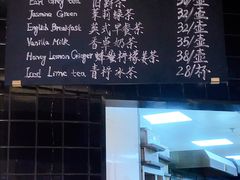 Earl Grey tea 伯爵茶 30/壶
Jasmine Green 茉莉绿茶 30/壶
English Breakfast 英式早餐茶 32/壶
Vanilla Milk 香草奶茶 35/壶
Honey Lemon Ginger 蜂蜜柠檬姜茶 38/壶
Iced Lime tea 青柠冰茶 28/杯